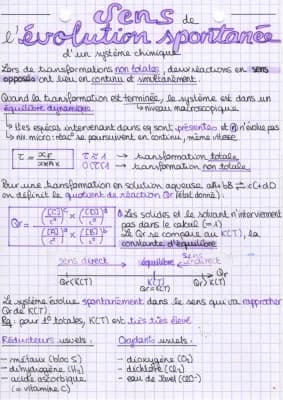 Sens de
l'évolution spontanée
d'un système chimique
Lors de transformations non totales, deux réactions en sens
opposés ont lieu en continu et simultanément.
Quand la transformation est terminée, le système est dans un
équilibre dynamique
↳ niveau macroscopique
↳ les espèces intervenant dans eq sont présentes et n'évolue pas
↳ niv. micro : réac° se poursuivent en continu, même vitesse
τ = xf / xMAX
τ = 1 → transformation totale
τ < 1 → transformation non totale
Pour une transformation en solution aqueuse aA+bB ⇌ cC+dD
on définit le quotient de réaction Qr (état donné) :
Qr = ([C]/c°)^c × ([D]/c°)^d / ([A]/c°)^a × ([B]/c°)^b
Les solides et le solvant n'interviennent
pas dans le calcul (=1)
Le Qr se compare au K(T), la
constante d'équilibre
sens direct équilibre sens indirect
Qr
Qr<K(T) K(T) Qr>K(T)
Qr=K(T)
Le système évolue spontanément dans le sens qui va rapprocher
Qr de K(T).
Rq : pour t° totales, K(T) est très très élevé
Réducteurs usuels : Oxydants usuels :
- métaux (bloc S) - dioxygène (O₂)
- dihydrogène (H₂) - dichlore (Cl₂)
- acide ascorbique - eau de Javel (ClO⁻)
(= vitamine C)